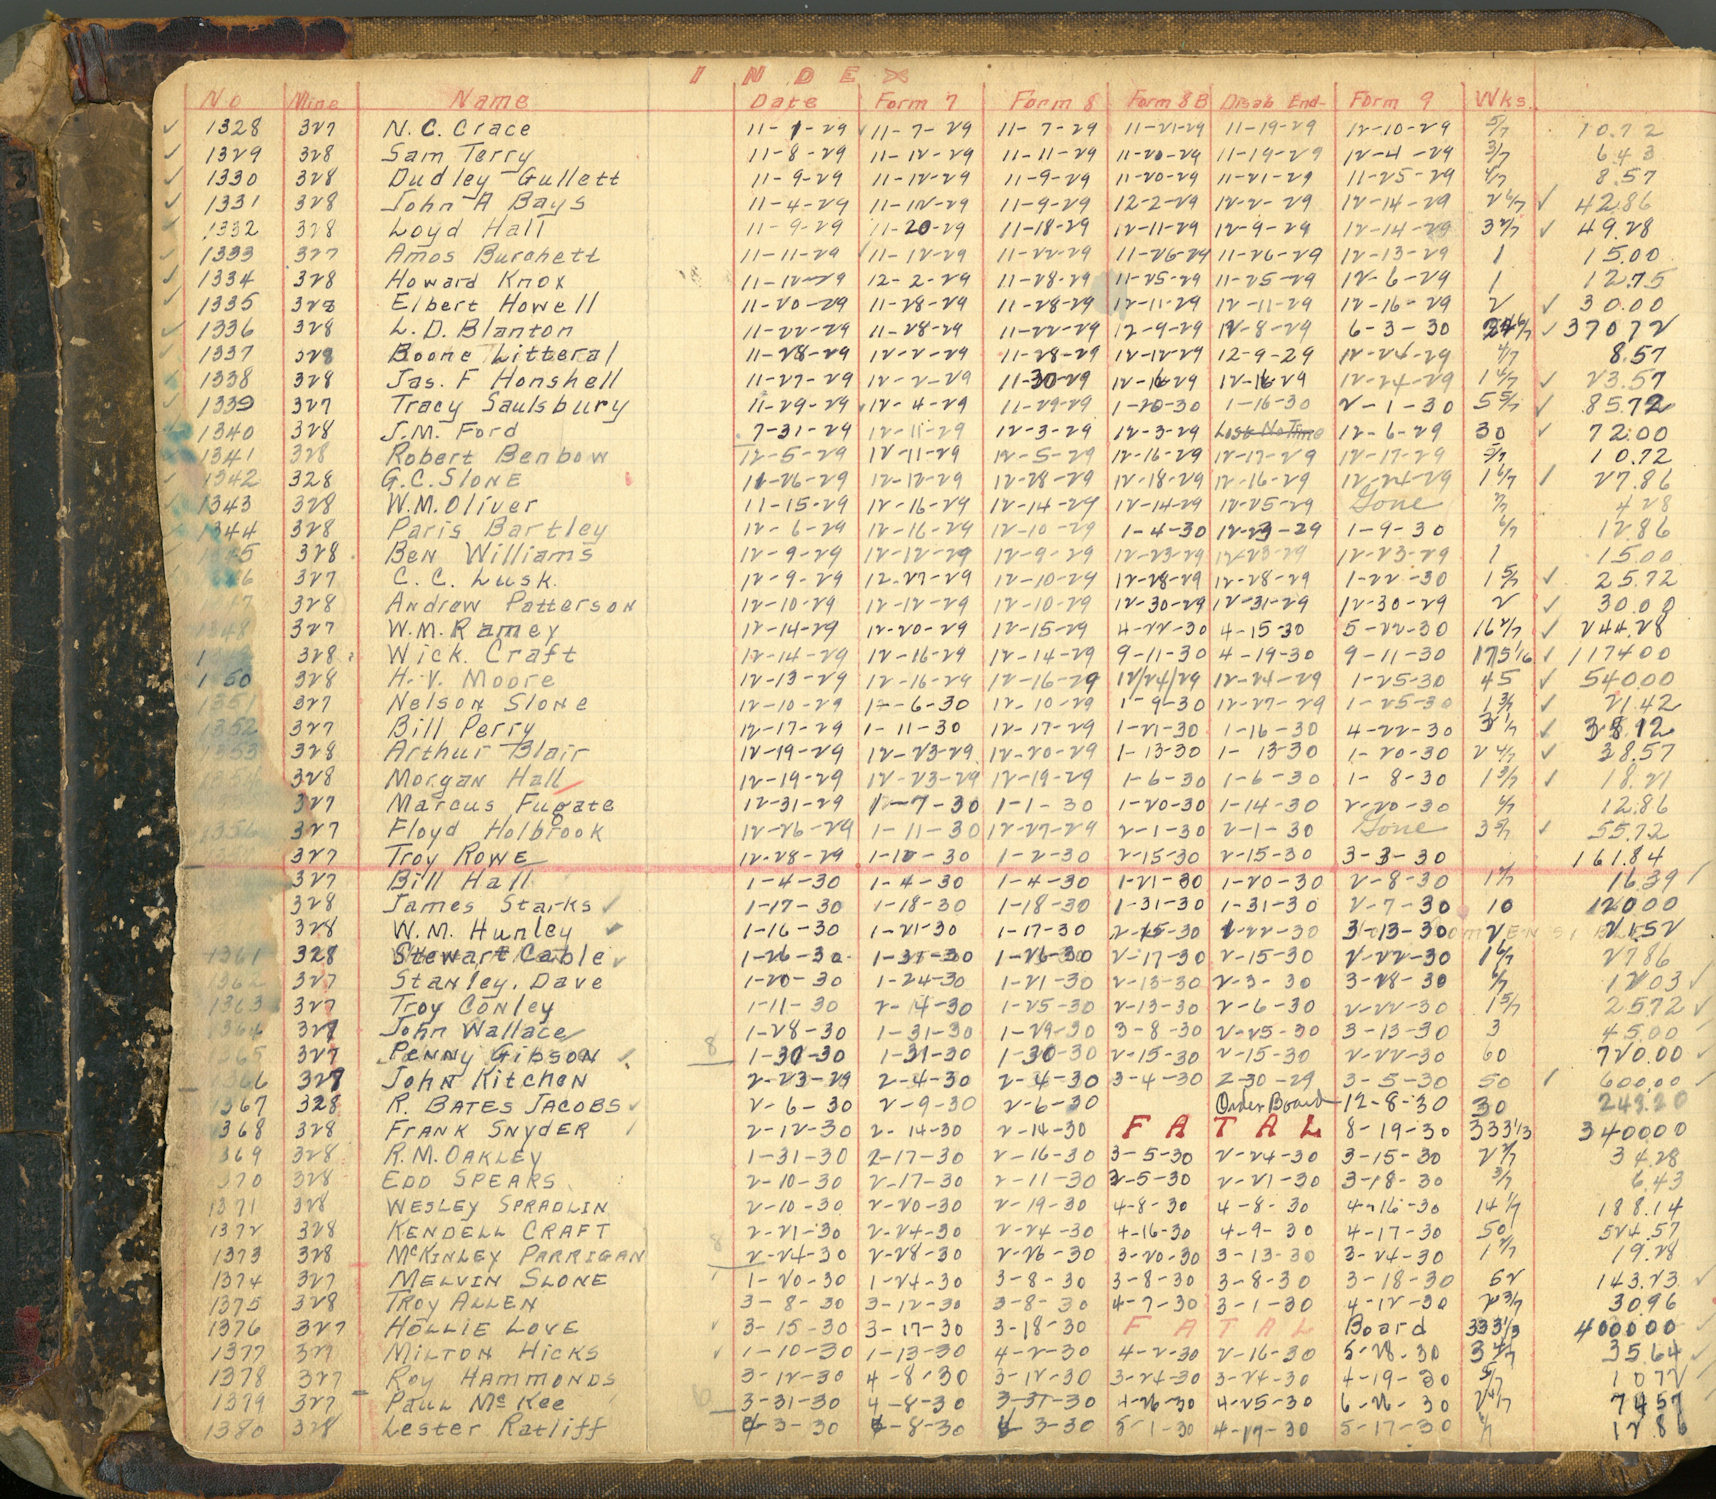 I N D E X
No Mine Name Date Form 7 Form 8 Form 8B Disab End- Form 9 Wks.
1328 327 N.C. Crace 11-7-29 11-7-29 11-7-29 11-21-29 11-19-29 12-10-29 5/7 10.72
1329 328 Sam Terry 11-8-29 11-12-29 11-11-29 11-20-29 11-19-29 12-4-29 3/7 6.43
1330 328 Dudley Gullett 11-9-29 11-12-29 11-9-29 11-20-29 11-21-29 11-25-29 4/7 8.57
1331 328 John A Bays 11-4-29 11-12-29 11-9-29 12-2-29 12-2-29 12-14-29 2 6/7 42.86
1332 328 Loyd Hall 11-9-29 11-20-29 11-18-29 12-11-29 12-9-29 12-14-29 3 2/7 49.28
1333 327 Amos Burchett 11-11-29 11-12-29 11-22-29 11-26-29 11-26-29 12-13-29 1 15.00
1334 328 Howard Knox 11-12-29 12-2-29 11-28-29 11-25-29 11-25-29 12-6-29 1 12.75
1335 328 Elbert Howell 11-20-29 11-28-29 11-28-29 12-11-29 12-11-29 12-16-29 2 30.00
1336 328 L.D. Blanton 11-22-29 11-28-29 11-22-29 12-9-29 12-8-29 6-3-30 370.72
1337 328 Boone Litteral 11-28-29 12-2-29 11-28-29 12-12-29 12-9-29 12-24-29 4/7 8.57
1338 328 Jas. F Honshell 11-27-29 12-2-29 11-30-29 12-16-29 12-16-29 12-24-29 1 4/7 23.57
1339 327 Tracy Saulsbury 11-29-29 12-4-29 11-29-29 1-20-30 1-16-30 2-1-30 5 5/7 85.72
1340 328 J.M. Ford 7-31-29 12-11-29 12-3-29 12-3-29 Lost No Time 12-6-29 30 72.00
1341 328 Robert Benbow 12-5-29 12-11-29 12-5-29 12-16-29 12-17-29 12-17-29 5/7 10.72
1342 328 G.C. Slone 11-26-29 12-12-29 12-28-29 12-18-29 12-16-29 12-24-29 1 6/7 27.86
1343 328 W.M. Oliver 11-15-29 12-16-29 12-14-29 12-14-29 12-25-29 Gone 2/7 4.28
1344 328 Paris Bartley 12-6-29 12-16-29 12-10-29 1-4-30 12-23-29 1-9-30 6/7 12.86
328 Ben Williams 12-9-29 12-12-29 12-9-29 12-23-29 12-23-29 12-23-29 1 15.00
327 C.C. Lusk. 12-9-29 12-27-29 12-10-29 12-28-29 12-28-29 1-22-30 1 5/7 25.72
328 Andrew Patterson 12-10-29 12-12-29 12-10-29 12-30-29 12-31-29 12-30-29 2 30.00
1348 327 W.M. Ramey 12-14-29 12-20-29 12-15-29 4-22-30 4-15-30 5-22-30 16 2/7 244.28
328 Wick. Craft 12-14-29 12-16-29 12-14-29 9-11-30 4-19-30 9-11-30 1174.00
328 H.V. Moore 12-13-29 12-16-29 12-16-29 12/24/29 12-24-29 1-25-30 45 540.00
1351 327 Nelson Slone 12-10-29 1-6-30 12-10-29 1-9-30 12-27-29 1-25-30 1 3/7 21.42
1352 327 Bill Perry 12-17-29 1-11-30 12-17-29 1-21-30 1-16-30 4-22-30 3 1/7 38.12
1353 328 Arthur Blair 12-19-29 12-23-29 12-20-29 1-13-30 1-13-30 1-20-30 2 4/7 38.57
328 Morgan Hall 12-19-29 12-23-29 12-19-29 1-6-30 1-6-30 1-8-30 1 3/7 18.21
327 Marcus Fugate 12-31-29 1-7-30 1-1-30 1-20-30 1-14-30 2-20-30 6/7 12.86
1356 327 Floyd Holbrook 12-26-29 1-11-30 12-27-29 2-1-30 2-1-30 Gone 3 5/7 55.72
327 Troy Rowe 12-28-29 1-10-30 1-2-30 2-15-30 2-15-30 3-3-30 161.84
327 Bill Hall 1-4-30 1-4-30 1-4-30 1-21-30 1-20-30 2-8-30 16.39
328 James Starks 1-17-30 1-18-30 1-18-30 1-31-30 1-31-30 2-7-30 10 120.00
328 W.M. Hunley 1-16-30 1-21-30 1-17-30 2-15-30 1-22-30 3-13-30 21.52
1361 328 Stewart Cable 1-26-30 1-26-30 2-17-30 2-15-30 2-22-30 1 6/7 27.86
1362 327 Stanley, Dave 1-20-30 1-24-30 1-21-30 2-13-30 2-3-30 3-28-30 6/7 12.03
1363 327 Troy Conley 1-11-30 2-14-30 1-25-30 2-13-30 2-6-30 2-22-30 1 5/7 25.72
1364 327 John Wallace 1-28-30 1-31-30 1-29-30 3-8-30 2-25-30 3-13-30 3 45.00
1365 327 Penny Gibson 8 1-30-30 1-31-30 1-30-30 2-15-30 2-15-30 2-22-30 60 720.00
1366 327 John Kitchen 2-23-29 2-4-30 2-4-30 3-4-30 2-30-29 3-5-30 50 600.00
1367 328 R. Bates Jacobs 2-6-30 2-9-30 2-6-30 Order Board 12-8-30 30 248.20
1368 328 Frank Snyder 2-12-30 2-14-30 2-14-30 F A T A L 8-19-30 333 1/3 3400.00
369 328 R.M. Oakley 1-31-30 2-17-30 2-16-30 3-5-30 2-24-30 3-15-30 2 2/7 34.28
370 328 Edd Spears 2-10-30 2-17-30 2-11-30 2-5-30 2-21-30 3-18-30 3/7 6.43
1371 328 Wesley Spradlin 2-10-30 2-20-30 2-19-30 4-8-30 4-8-30 4-16-30 14 1/7 188.14
1372 328 Kendell Craft 2-21-30 2-24-30 2-24-30 4-16-30 4-9-30 4-17-30 50 524.57
1373 328 McKinley Parrigan 8 2-24-30 2-28-30 2-26-30 3-20-30 3-13-30 3-24-30 1 2/7 19.28
1374 327 Melvin Slone 1-20-30 1-24-30 3-8-30 3-8-30 3-8-30 3-18-30 52 143.23
1375 328 Troy Allen 3-8-30 3-12-30 3-8-30 4-7-30 3-1-30 4-12-30 2 3/7 30.96
1376 327 Hollie Love 3-15-30 3-17-30 3-18-30 F A T A L Board 333 1/3 4000.00
1377 327 Milton Hicks 1-10-30 1-13-30 4-2-30 4-2-30 2-16-30 5-28-30 3 4/7 35.64
1378 327 Roy Hammonds 3-12-30 4-8-30 3-12-30 3-24-30 3-24-30 4-19-30 5/7 10.72
1379 327 Paul McKee 3-31-30 4-8-30 3-31-30 4-26-30 4-25-30 6-26-30 74.57
1380 328 Lester Ratliff 4-3-30 4-8-30 4-3-30 5-1-30 4-17-30 5-17-30 6/7 12.86